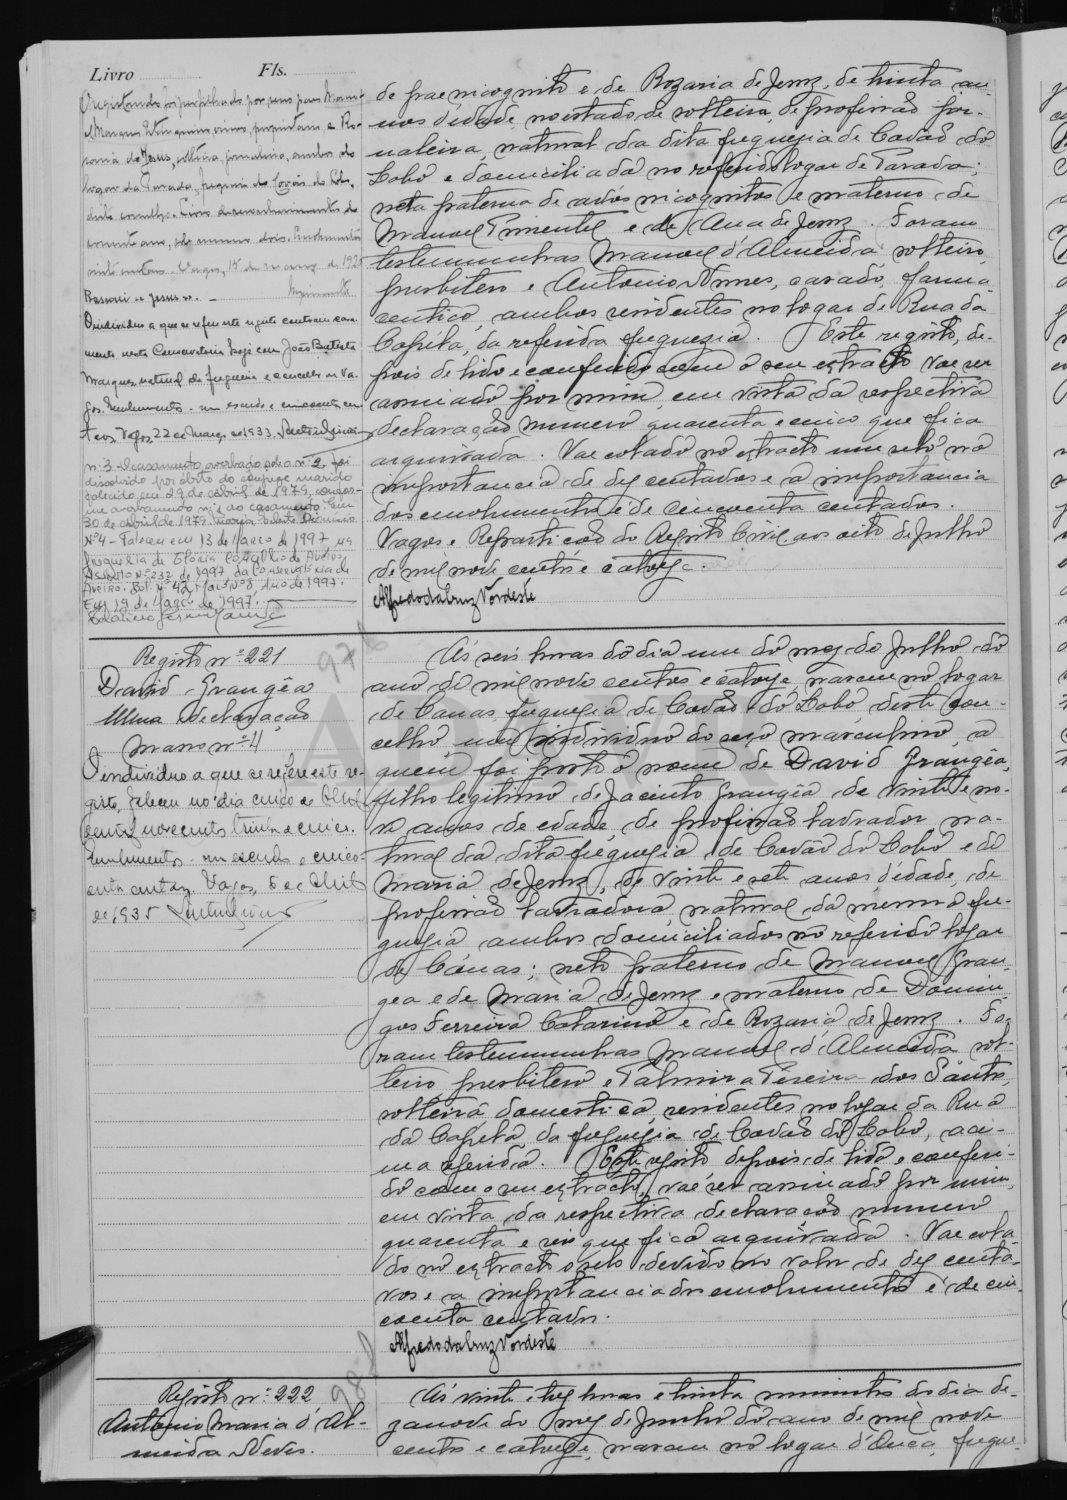 Livro Fls.
O registando foi perfilhado por seus paes Manuel
Marques
Jesus, solteira, jornaleira, ambos do
logar da Parada, freguesia de Covão do Lobo,
Vagos, 15 de março de 192
Rosaria de Jesus
O individuo a que se refere este registo contraiu casa-
mento nesta Conservatoria hoje com João Batista
Marques natural da freguesia e concelho de Va-
gos. Emolumentos um escudo e cincoenta cen
tavos. Vagos, 22 de Março de 1933.
n.º 3 - O casamento averbado sob o n.º 2, foi
dissolvido por óbito do conjuge marido
falecido em 29 de abril de 1979, confor-
me averbamento n.º 1 ao casamento. Em
30 de abril de 1979.
Nº4 - Faleceu em 13 de Março de 1997 na
freguesia de Glória concelho de Aveiro,
Assento Nº 232 de 1997 da Conservatória de
Aveiro. Bol. Nº 42, Maço Nº 8, Ano de 1997.
Em 19 de Março de 1997.
de pae incognito e de Rozaria de Jesus, de trinta an-
nos d'edade, no estado de solteira, de profissão jor-
naleira, natural da dita freguezia de Covão do
Lobo e domiciliada no referido logar de Parada;
neta paterna de avós incognitos e materno de
Manoel Pimentel e de Ana de Jesus. Foram
testemunhas Manoel d'Almeida, solteiro,
presbitero e Antonio Nunes, casado, farma-
ceutico, ambos residentes no logar de Rua da
Capéla, da referida freguezia. Este registo, de-
pois de lido e conferido com o seu extracto vae ser
assinado por mim, em vista da respectiva
declaração numero quarenta e cinco que fica
arquivada. Vae cotado no extracto um selo na
importancia de dez centavos e a importancia
dos emolumentos é de cincoenta centavos.
Vagos e Repartição do Registo Civil aos oito de Julho
de mil nove centos e catorze.
Alfredo da Cruz Nordeste
Registo nº 221
David Grangêa
Uma declaração
Masso nº 4
O individuo a que se refere este re-
gisto, faleceu no dia cinco de Abril
de mil novecentos trinta e cinco.
Emolumentos um escudo e cinco-
enta centav. Vagos, 6 de Abril
de 1935
976
Ás seis huras do dia um do mez de Julho do
ano de mil nove centos e catorze nasceu no logar
de Canas, freguezia de Covão do Lobo, deste con-
celho, um individuo do sexo masculino, a
quem foi posto o nome de David Grangêa,
filho legitimo de Jacinto Grangêa, de vinte e no-
ve anos de edade, de profissão lavrador, na-
tural da dita freguezia de Covão do Lobo e de
Maria de Jesus, de vinte e sete anos d'idade, de
profissão lavradora, natural da mesma fre-
guezia, ambos domiciliados no referido logar
de Cánas; neto paterno de Manoel Gran-
gea e de Maria de Jesus e materno de Domin-
gos Ferreira Catarino e de Rozaria de Jesus. Fo-
ram testemunhas Manoel d'Almeida, sol-
teiro, presbitero e Palmira Pereira dos Santos,
solteira, domestica residentes no logar da Rua
da Capéla, da freguezia de Covão do Lobo, aci-
ma referida. Este registo depois de lido e conferi-
do com o seu extracto, vae ser assinado por mim,
em vista da respectiva declaração numero
quarenta e seis que fica arquivada. Vae cota-
do no extracto o selo devido no valor de dez centa-
vos e a importancia dos emolumentos é de cin-
coenta centavos.
Alfredo da Cruz Nordeste
Registo nº 222
Antonio Maria d'Al-
meida Neves.
Ás vinte e trez horas e trinta minutos do dia de-
zanove do mez de Junho do ano de mil nove
centos e catorze, nasceu no logar d'Ouca, fregue-